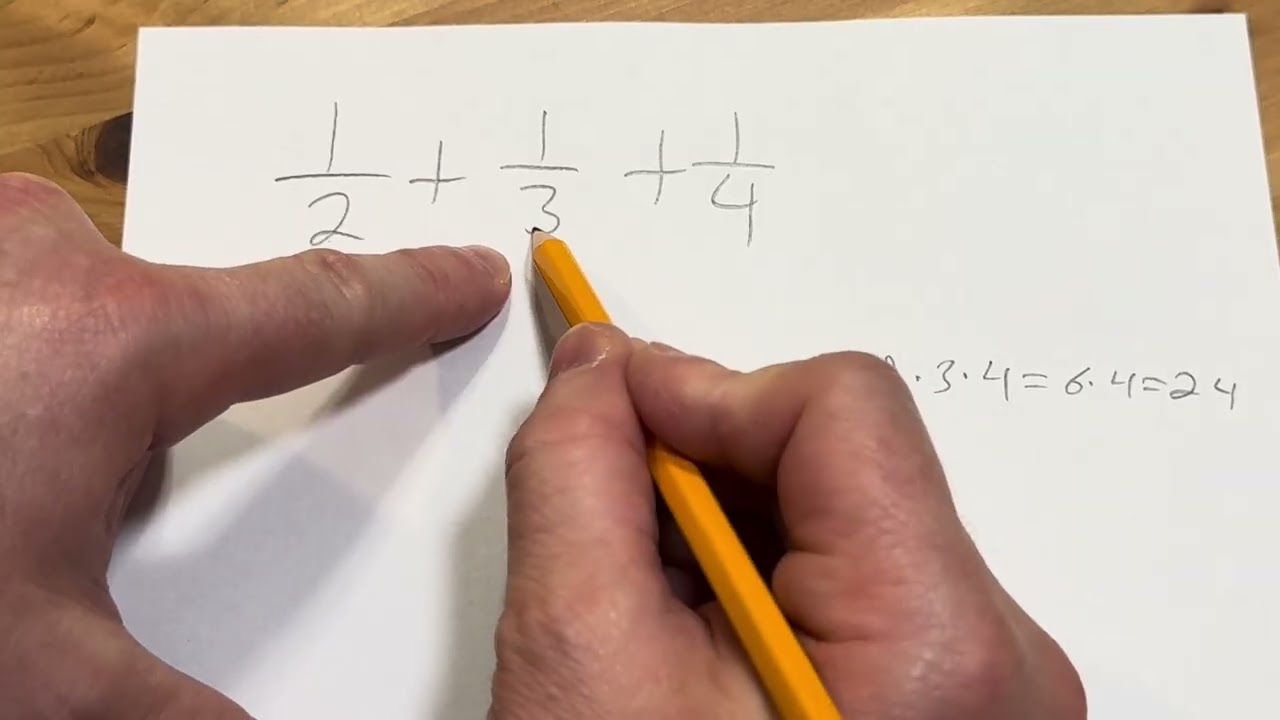 1/2 + 1/3 + 1/4
· 3 · 4 = 6 · 4 = 24